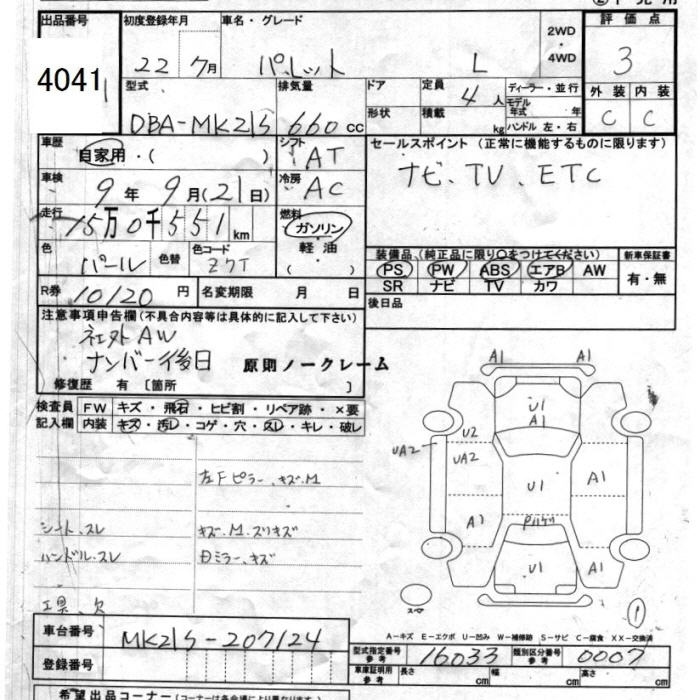 出品番号 初度登録年月 車名・グレード 2WD・4WD 評価点
4041 22 7月 パレット L 3
型式 排気量 ドア 定員 ディーラー・並行 外装 内装
DBA-MK21S 660cc 形状 積載 4人 kg モデル年式 年 ハンドル 左・右 C C
車歴 自家用・( ) シフト AT セールスポイント (正常に機能するものに限ります)
車検 9年 9月(21日) 冷房 AC ナビ、TV、ETC
走行 15万0千551km 燃料 ガソリン
軽・油
( )
色 パール 色替 色コード Z7T 装備品(純正品に限り○をつけてください) 新車保証書
PS PW ABS エアB AW 有・無
SR ナビ TV カワ
R券 10120円 名変期限 月 日 後日品
注意事項申告欄(不具合内容等は具体的に記入して下さい)
社外AW
ナンバー後日 原則ノークレーム
修復歴 有 〔箇所 〕
検査員記入欄 FW キズ・飛石・ヒビ割・リペア跡・×要
内装 キズ・汚レ・コゲ・穴・スレ・キレ・破レ
左Fピラー、キズ、M
シート、スレ キズ、M、スリキズ
ハンドル・スレ 日ミラー、キズ
工具、欠
A1 A1
U1
A1
U2
UA2 UA2
U1 A1
A1
U1 A1
スペ
1
A-キズ E-エクボ U-凹み W-補修跡 S-サビ C-腐食 XX-交換済
車台番号 MK21S-207124
型式指定番号 参考 16033 類別区分番号 参考 0007
登録番号 車庫証明用 参考 長さ cm 幅 cm 高さ cm
希望出品コーナー(コーナーは各会場により異なります)